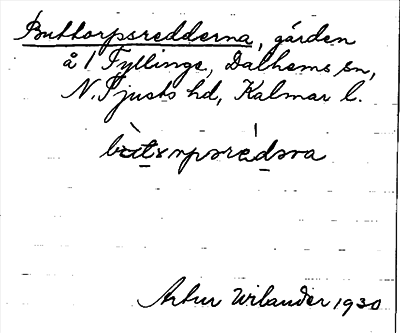 Buttorpsredderna, gården
å 1 Tyllinge, Dalhems sn,
N. Tjusts hd, Kalmar l.
Artur Wilander 1930